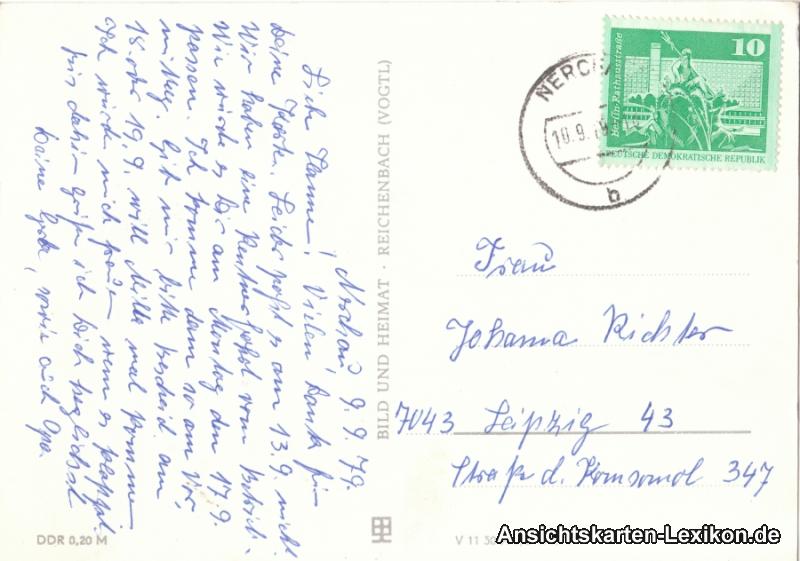 Nerchau, 9.9.79.
Liebe Hanne! Vielen Dank für
Deine Karte. Leider paßt es am 13.9. nicht.
Wir haben eine Rentnerfahrt vom Betrieb.
Wie würde es Dir am Montag den 17.9.
passen. Ich komme dann so am Vor-
mittag. Gib mir bitte Bescheid. Am
18. oder 19.9. will Milda mal kommen
Ich würde mich freuen wenn es klappt.
Bis dahin grüße ich Dich herzlichst
Deine sowie auch Opa.
BILD UND HEIMAT · REICHENBACH (VOGTL)
DDR 0,20 M
V 11 50
NERCHAU
10.9.79
b
10
Berlin-Rathausstraße
DEUTSCHE DEMOKRATISCHE REPUBLIK
Frau
Johanna Richter
7043 Leipzig 43
Straße d. Komsomol 347
Ansichtskarten-Lexikon.de